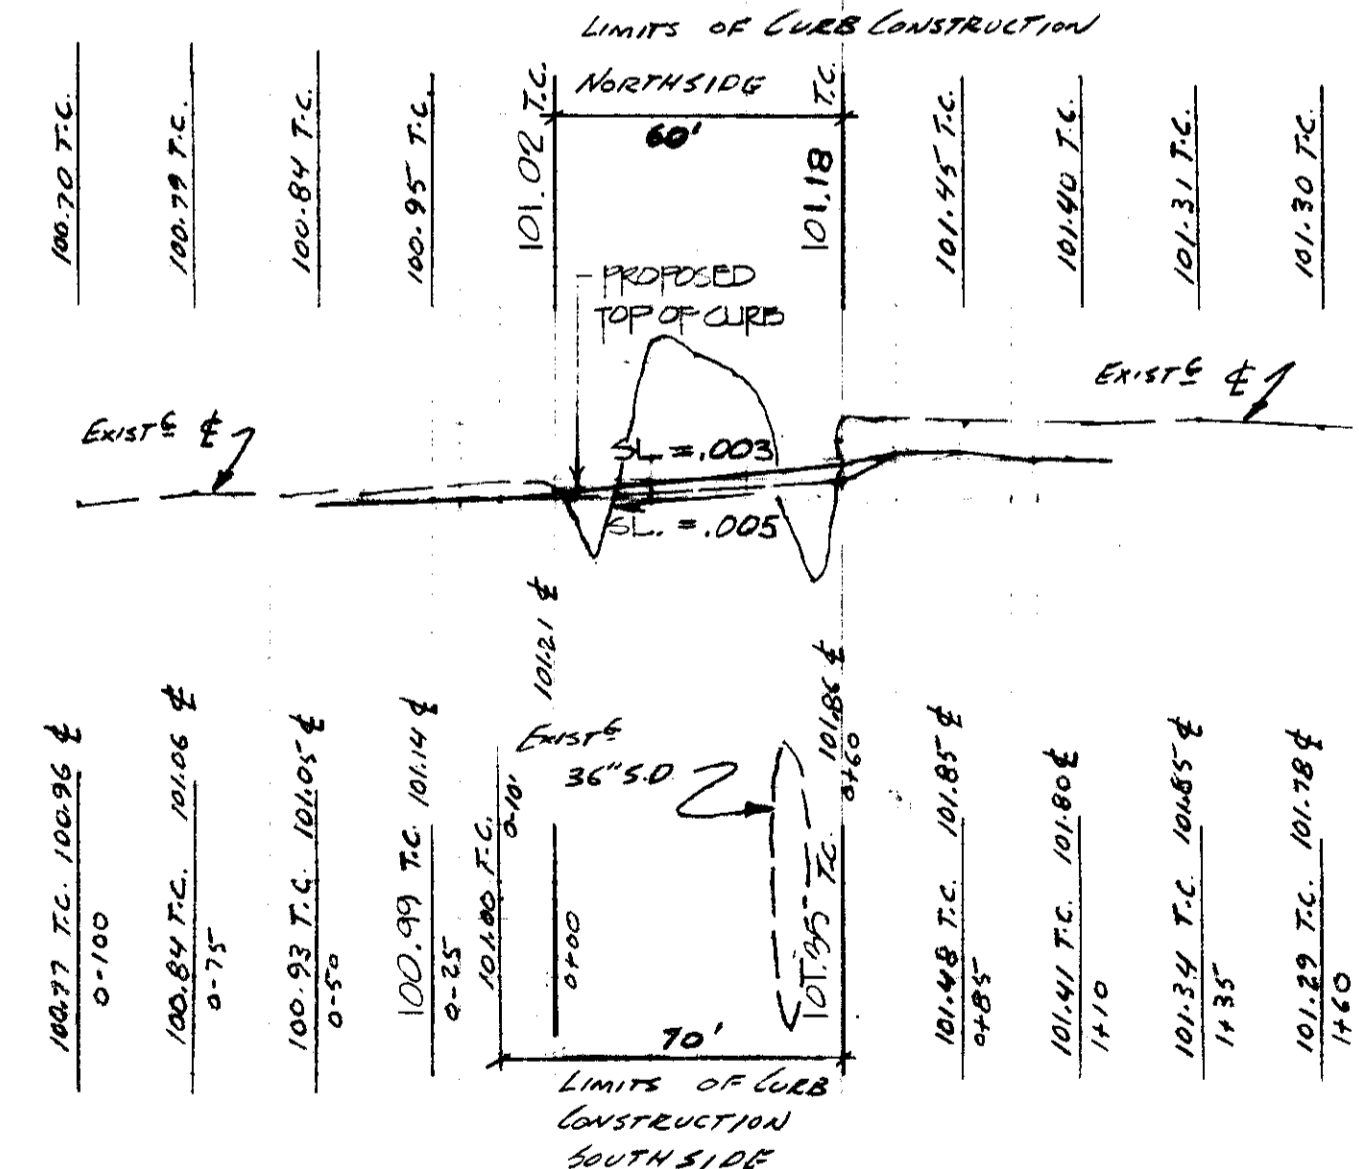 LIMITS OF CURB CONSTRUCTION
NORTHSIDE
60'
100.70 T.C.
100.79 T.C.
100.84 T.C.
100.95 T.C.
101.02 T.C.
101.18 T.C.
101.45 T.C.
101.40 T.C.
101.31 T.C.
101.30 T.C.
PROPOSED
TOP OF CURB
EXISTG ℄
EXISTG ℄
SL. = .003
SL. = .005
EXISTG
36" S.D.
100.77 T.C. 100.96 ℄
0-100
100.84 T.C. 101.06 ℄
0-75
100.93 T.C. 101.05 ℄
0-50
100.99 T.C. 101.14 ℄
0-25
101.00 T.C.
0-10'
101.21 ℄
0+00
101.35 T.C. 101.86 ℄
0+60
101.48 T.C. 101.85 ℄
0+85
101.41 T.C. 101.80 ℄
1+10
101.34 T.C. 101.85 ℄
1+35
101.29 T.C. 101.78 ℄
1+60
70'
LIMITS OF CURB
CONSTRUCTION
SOUTHSIDE